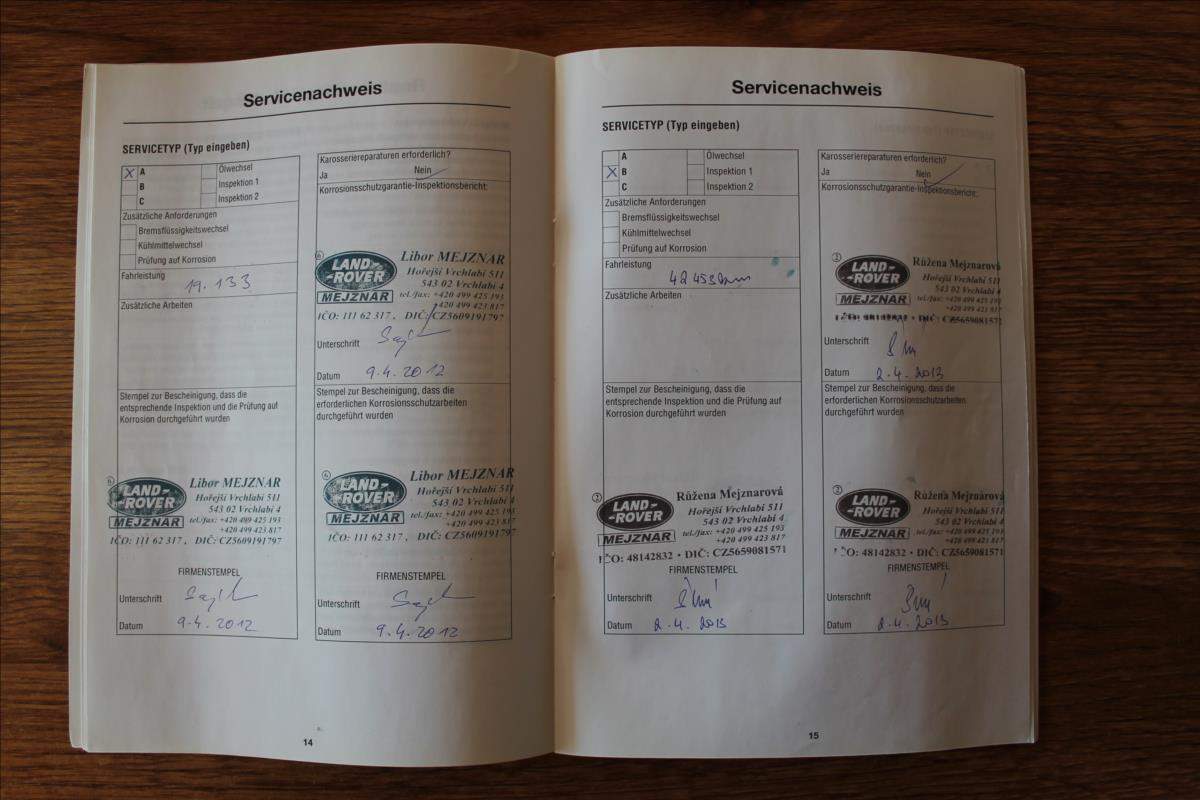 Servicenachweis
SERVICETYP (Typ eingeben)
X A Ölwechsel
B Inspektion 1
C Inspektion 2
Zusätzliche Anforderungen
Bremsflüssigkeitswechsel
Kühlmittelwechsel
Prüfung auf Korrosion
Fahrleistung
19.133
Zusätzliche Arbeiten
Stempel zur Bescheinigung, dass die
entsprechende Inspektion und die Prüfung auf
Korrosion durchgeführt wurden
6
LAND-
-ROVER
MEJZNAR
Libor MEJZNAR
Hořejší Vrchlabí 511
543 02 Vrchlabí 4
tel./fax: +420 499 425 193
+420 499 423 817
IČO: 111 62 317, DIČ: CZ5609191797
FIRMENSTEMPEL
Unterschrift
Datum 9.4.2012
Karosseriereparaturen erforderlich?
Ja Nein
Korrosionsschutzgarantie-Inspektionsbericht:
6
LAND-
-ROVER
MEJZNAR
Libor MEJZNAR
Hořejší Vrchlabí 511
543 02 Vrchlabí 4
tel./fax: +420 499 425 193
+420 499 423 817
IČO: 111 62 317, DIČ: CZ5609191797
Unterschrift
Datum 9.4.2012
Stempel zur Bescheinigung, dass die
erforderlichen Korrosionsschutzarbeiten
durchgeführt wurden
6
LAND-
-ROVER
MEJZNAR
Libor MEJZNAR
Hořejší Vrchlabí 511
543 02 Vrchlabí 4
tel./fax: +420 499 425 193
+420 499 423 817
IČO: 111 62 317, DIČ: CZ5609191797
FIRMENSTEMPEL
Unterschrift
Datum 9.4.2012
14
Servicenachweis
SERVICETYP (Typ eingeben)
A Ölwechsel
X B Inspektion 1
C Inspektion 2
Zusätzliche Anforderungen
Bremsflüssigkeitswechsel
Kühlmittelwechsel
Prüfung auf Korrosion
Fahrleistung
Zusätzliche Arbeiten
Stempel zur Bescheinigung, dass die
entsprechende Inspektion und die Prüfung auf
Korrosion durchgeführt wurden
2
LAND-
-ROVER
MEJZNAR
Růžena Mejznarová
Hořejší Vrchlabí 511
543 02 Vrchlabí 4
tel./fax: +420 499 425 193
+420 499 423 817
IČO: 48142832 · DIČ: CZ5659081571
FIRMENSTEMPEL
Unterschrift
Datum 2.4.2013
Karosseriereparaturen erforderlich?
Ja Nein
Korrosionsschutzgarantie-Inspektionsbericht:
2
LAND-
-ROVER
MEJZNAR
Růžena Mejznarová
Hořejší Vrchlabí 511
543 02 Vrchlabí 4
tel./fax: +420 499 425 193
+420 499 423 817
IČO: 48142832 · DIČ: CZ5659081571
Unterschrift
Datum 2.4.2013
Stempel zur Bescheinigung, dass die
erforderlichen Korrosionsschutzarbeiten
durchgeführt wurden
2
LAND-
-ROVER
MEJZNAR
Růžena Mejznarová
Hořejší Vrchlabí 511
543 02 Vrchlabí 4
tel./fax: +420 499 425 193
+420 499 423 817
IČO: 48142832 · DIČ: CZ5659081571
FIRMENSTEMPEL
Unterschrift
Datum 2.4.2013
15